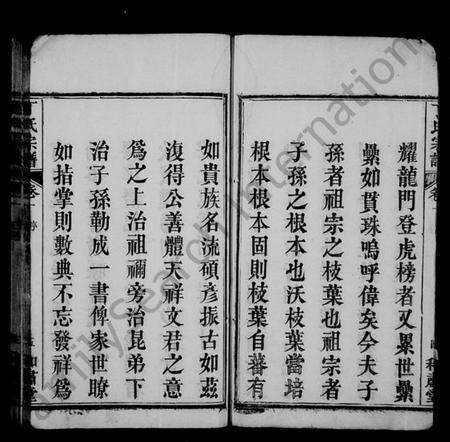 耀龍門登虎榜者又累世纍
纍如貫珠嗚呼偉矣今夫子
孫者祖宗之枝葉也祖宗者
子孫之根本也沃枝葉當培
根本根本固則枝葉自蕃有
如貴族名流碩彥振古如茲
復得公善體天祥文君之意
為之上治祖禰旁治昆弟下
治子孫勒成一書俾家世瞭
如指掌則數典不忘發祥為
氏宗譜
卷
FamilySearch International